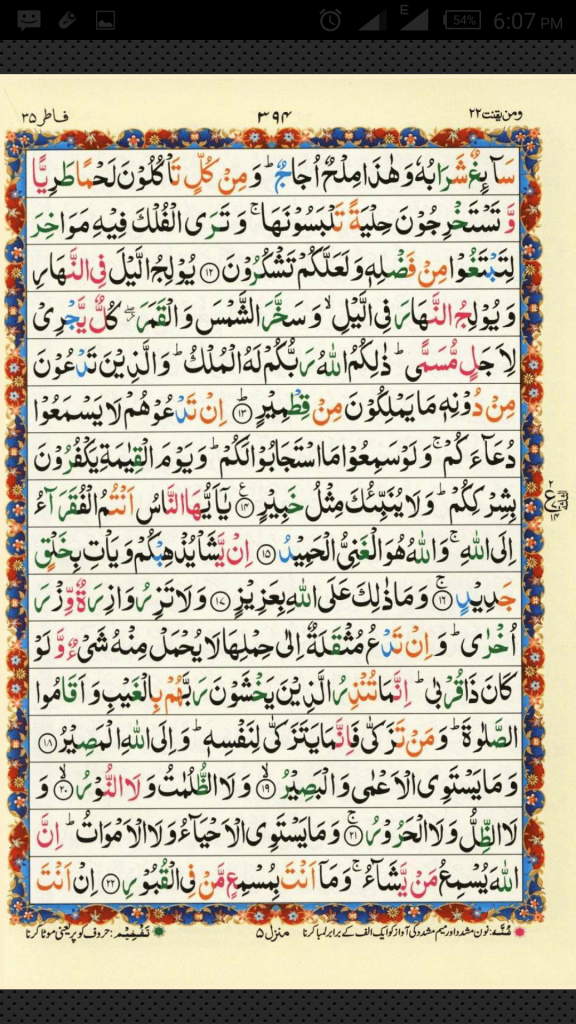 E 54% 6:07 PM
ومن یقنت ۲۲ ۳۹۴ فاطر ۳۵
سَآىِٕغٌ شَرَابُهٗ وَهٰذَا مِلْحٌ اُجَاجٌ ؕ وَمِنْ كُلٍّ تَاْكُلُوْنَ لَحْمًا طَرِیًّا
وَّ تَسْتَخْرِجُوْنَ حِلْیَةً تَلْبَسُوْنَهَا ۚ وَتَرَی الْفُلْكَ فِیْهِ مَوَاخِرَ
لِتَبْتَغُوْا مِنْ فَضْلِهٖ وَلَعَلَّكُمْ تَشْكُرُوْنَ ﴿۱۲﴾ یُوْلِجُ الَّیْلَ فِی النَّهَارِ
وَیُوْلِجُ النَّهَارَ فِی الَّیْلِ ۙ وَسَخَّرَ الشَّمْسَ وَالْقَمَرَ ۖؗ كُلٌّ یَّجْرِیْ
لِاَجَلٍ مُّسَمًّی ؕ ذٰلِكُمُ اللّٰهُ رَبُّكُمْ لَهُ الْمُلْكُ ؕ وَالَّذِیْنَ تَدْعُوْنَ
مِنْ دُوْنِهٖ مَا یَمْلِكُوْنَ مِنْ قِطْمِیْرٍ ﴿ؕ۱۳﴾ اِنْ تَدْعُوْهُمْ لَا یَسْمَعُوْا
دُعَآءَكُمْ ۚ وَلَوْ سَمِعُوْا مَا اسْتَجَابُوْا لَكُمْ ؕ وَیَوْمَ الْقِیٰمَةِ یَكْفُرُوْنَ
بِشِرْكِكُمْ ؕ وَلَا یُنَبِّئُكَ مِثْلُ خَبِیْرٍ ﴿۱۴﴾ یٰۤاَیُّهَا النَّاسُ اَنْتُمُ الْفُقَرَآءُ
اِلَی اللّٰهِ ۚ وَاللّٰهُ هُوَ الْغَنِیُّ الْحَمِیْدُ ﴿۱۵﴾ اِنْ یَّشَاْ یُذْهِبْكُمْ وَیَاْتِ بِخَلْقٍ
جَدِیْدٍ ﴿ۚ۱۶﴾ وَمَا ذٰلِكَ عَلَی اللّٰهِ بِعَزِیْزٍ ﴿۱۷﴾ وَلَا تَزِرُ وَازِرَةٌ وِّزْرَ
اُخْرٰی ؕ وَاِنْ تَدْعُ مُثْقَلَةٌ اِلٰی حِمْلِهَا لَا یُحْمَلْ مِنْهُ شَیْءٌ وَّلَوْ
كَانَ ذَا قُرْبٰی ؕ اِنَّمَا تُنْذِرُ الَّذِیْنَ یَخْشَوْنَ رَبَّهُمْ بِالْغَیْبِ وَاَقَامُوا
الصَّلٰوةَ ؕ وَمَنْ تَزَكّٰی فَاِنَّمَا یَتَزَكّٰی لِنَفْسِهٖ ؕ وَاِلَی اللّٰهِ الْمَصِیْرُ ﴿۱۸﴾
وَمَا یَسْتَوِی الْاَعْمٰی وَالْبَصِیْرُ ﴿ۙ۱۹﴾ وَلَا الظُّلُمٰتُ وَلَا النُّوْرُ ﴿ۙ۲۰﴾ وَ
لَا الظِّلُّ وَلَا الْحَرُوْرُ ﴿ۚ۲۱﴾ وَمَا یَسْتَوِی الْاَحْیَآءُ وَلَا الْاَمْوَاتُ ؕ اِنَّ
اللّٰهَ یُسْمِعُ مَنْ یَّشَآءُ ۚ وَمَاۤ اَنْتَ بِمُسْمِعٍ مَّنْ فِی الْقُبُوْرِ ﴿۲۲﴾ اِنْ اَنْتَ
غُنّه: نون مشدد اور میم مشدد کی آواز کو ایک الف کے برابر لمبا کرنا منزل ۵ تفخیم: حروف کو پُر یعنی موٹا کرنا